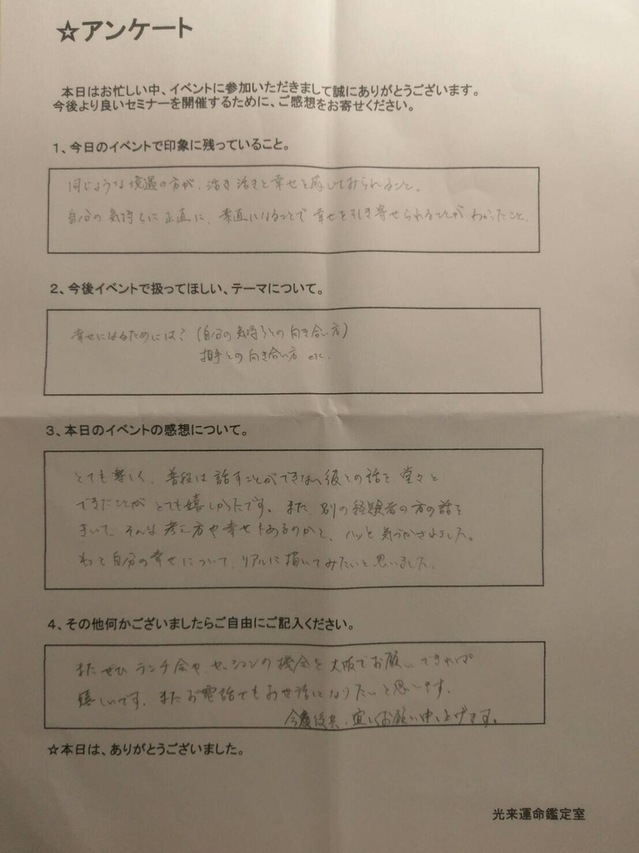 ☆アンケート
本日はお忙しい中、イベントに参加いただきまして誠にありがとうございます。
今後より良いセミナーを開催するために、ご感想をお寄せください。
1、今日のイベントで印象に残っていること。
同じような境遇の方が、活き活きと幸せを感じておられること。
自分の気持ちに正直に、素直になることで幸せを引き寄せられることがわかったこと。
2、今後イベントで扱ってほしい、テーマについて。
幸せになるためには?(自分の気持ちとの向き合い方)
相手との向き合い方 etc.
3、本日のイベントの感想について。
とても楽しく、普段は話すことができない彼との話を堂々と
できたことがとても嬉しかったです。また、別の経験者の方の話を
きいて、そんな考え方や幸せもあるのかと、ハッと気づかされました。
もっと自分の幸せについて、リアルに描いてみたいと思いました。
4、その他何かございましたらご自由にご記入ください。
またぜひランチ会や、セッションの機会を大阪でお願いできれば
嬉しいです。またお電話でもお世話になりたいと思います。
今度共、宜しくお願い申し上げます。
☆本日は、ありがとうございました。
光来運命鑑定室